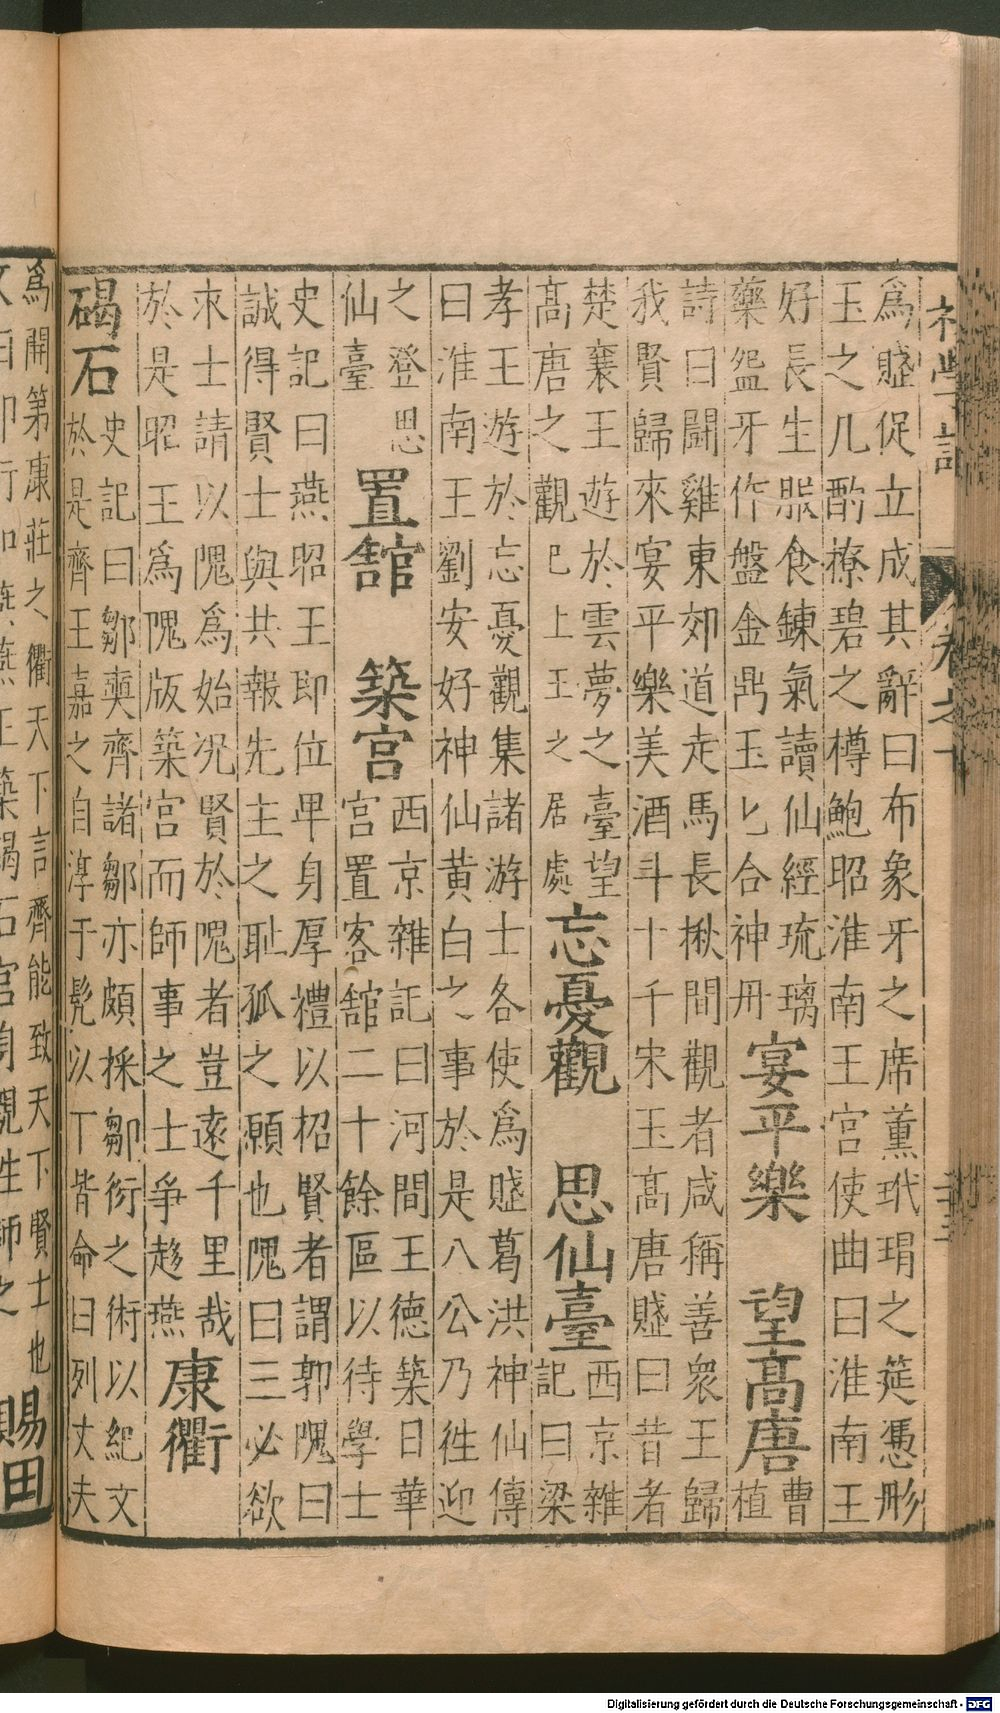 爲賤促立成其辭曰布象牙之席薫玳瑁之筵憑彤
玉之几酌橑碧之樽鮑昭淮南王宮使曲曰淮南王
好長生服食鍊氣讀仙經琉璃
藥盌牙作盤金鼎玉匕合神丹
宴平樂 望高唐
曹
植
詩曰鬭雞東郊道走馬長楸間觀者咸稱善衆王歸
我賢歸來宴平樂美酒斗十千宋玉髙唐賤曰昔者
楚襄王遊於雲夢之臺望
髙唐之觀巳上王之居處
忘憂觀 思仙臺
西京雜
記曰梁
孝王遊於忘憂觀集諸游士各使爲賤葛洪神仙傳
曰淮南王劉安好神仙黄白之事於是八公乃徃迎
之登思
仙臺
置舘 築宮
西京雜記曰河間王德築日華
宮置客舘二十餘區以待學士
史記曰燕昭王即位卑身厚禮以招賢者謂郭隗曰
誠得賢士與共報先主之耻孤之願也隗曰三必欲
求士請以隗爲始况賢於隗者豈遠千里哉
於是昭王爲隗版築宮而師事之士爭趍燕
康衢
碣石
史記曰鄒奭齊諸鄒亦頗採鄒衍之術以紀文
於是齊王嘉之自淳于髡以丅皆命曰列丈夫
爲開第康莊之衢天下言齊能致天下賢士也
賜田
卷之十
二十三
Digitalisierung gefördert durch die Deutsche Forschungsgemeinschaft - DFG